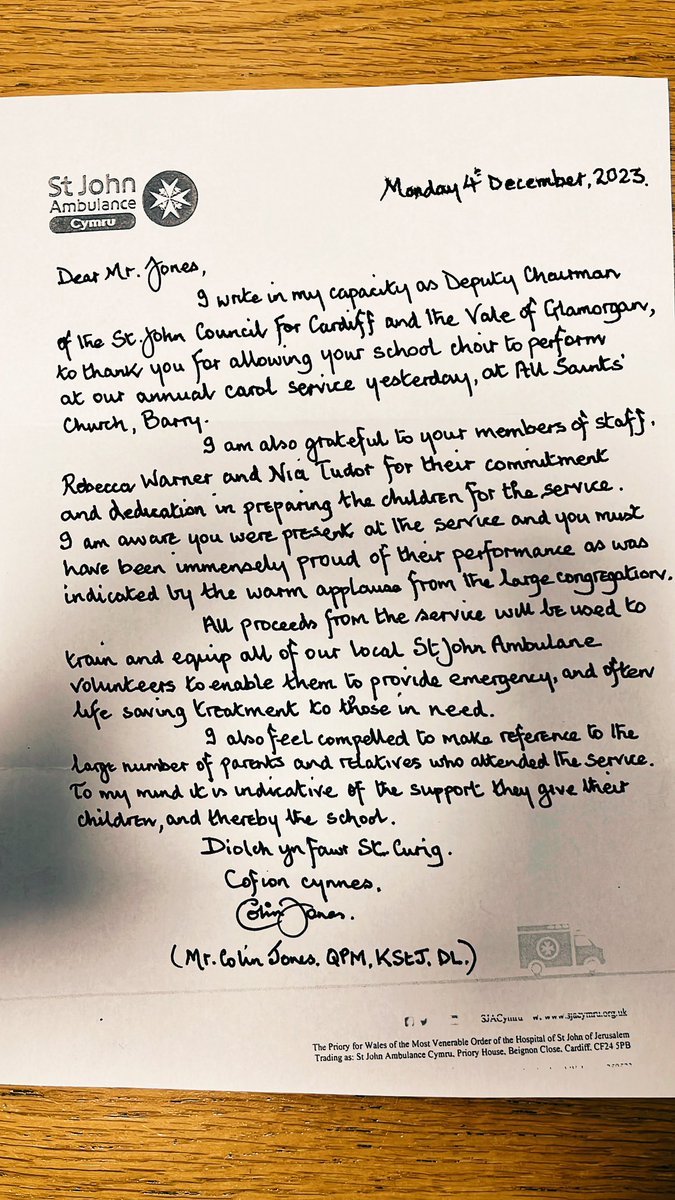 St John
Ambulance
Cymru
Monday 4th December, 2023.
Dear Mr. Jones,
I write in my capacity as Deputy Chairman
of the St. John Council for Cardiff and the Vale of Glamorgan,
to thank you for allowing your school choir to perform
at our annual carol service yesterday, at All Saints'
Church, Barry.
I am also grateful to your members of staff.
Rebecca Warner and Nia Tudor for their commitment
and dedication in preparing the children for the service.
I am aware you were present at the service and you must
have been immensely proud of their performance as was
indicated by the warm applause from the large congregation.
All proceeds from the service will be used to
train and equip all of our local St John Ambulane
volunteers to enable them to provide emergency, and often
life saving treatment to those in need.
I also feel compelled to make reference to the
large number of parents and relatives who attended the service.
To my mind it is indicative of the support they give their
children, and thereby the school.
Diolch yn fawr St. Curig.
Cofion cynnes.
Colin Jones.
(Mr. Colin Jones. QPM, KStJ. DL.)
SJACymru w. www.sjacymru.org.uk
The Priory for Wales of the Most Venerable Order of the Hospital of St John of Jerusalem
Trading as: St John Ambulance Cymru, Priory House, Beignon Close, Cardiff, CF24 5PB